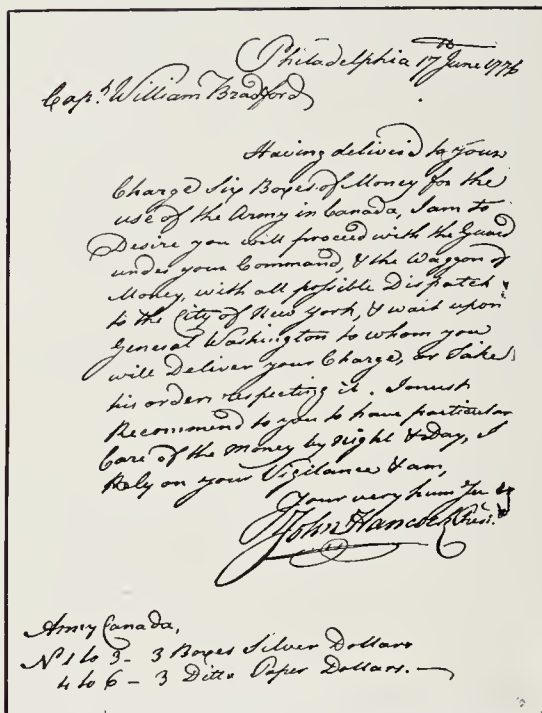 Philadelphia 17th June 1776
Capt. William Bradford
Having deliver'd to your
Charge Six Boxes of Money for the
use of the Army in Canada, I am to
Desire you will proceed with the Guard
under your Command, & the Waggon of
Money, with all possible Dispatch
to the City of New York, & wait upon
General Washington to whom you
will Deliver your Charge, or Take
his orders respecting it. I must
Recommend to you to have particular
Care of the Money by Night & day, I
Rely on your Vigilance & am,
Your very hum Ser
John Hancock Presi.
Army Canada,
No 1 to 3 - 3 Boxes Silver Dollars
4 to 6 - 3 Ditto Paper Dollars.